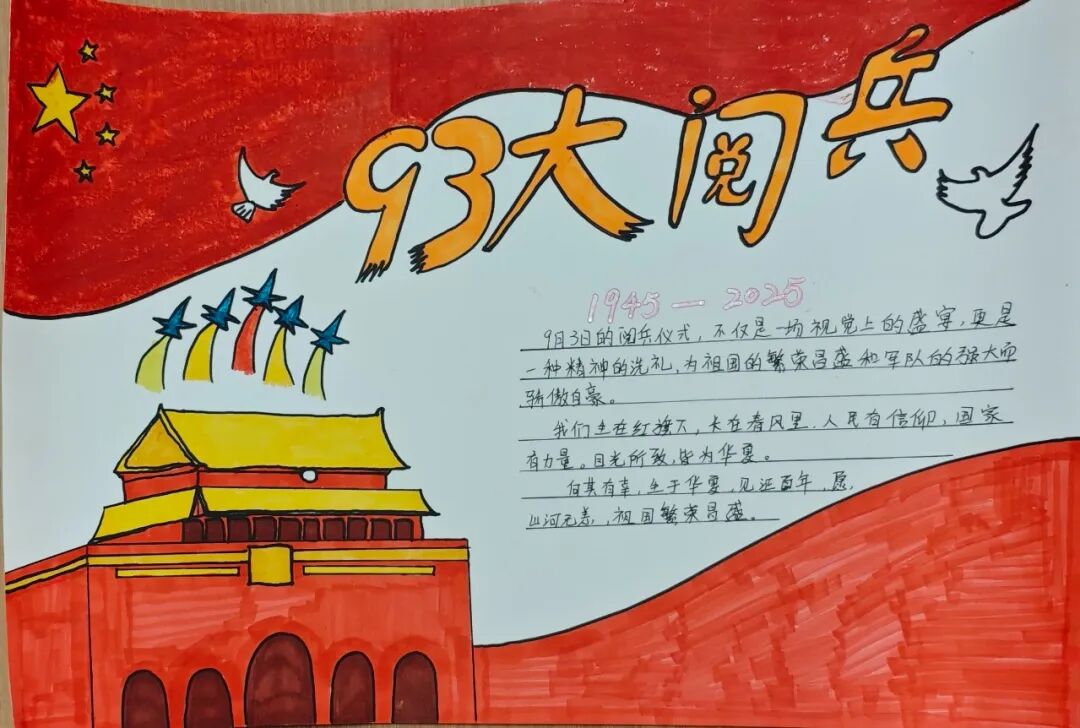 93大阅兵
1945—2025
9月3日的阅兵仪式，不仅是一场视觉上的盛宴，更是
一种精神的洗礼，为祖国的繁荣昌盛和军队的强大而
骄傲自豪。
我们生在红旗下，长在春风里，人民有信仰，国家
有力量。目光所致，皆为华夏。
何其有幸，生于华夏，见证百年，愿，
山河无恙，祖国繁荣昌盛。